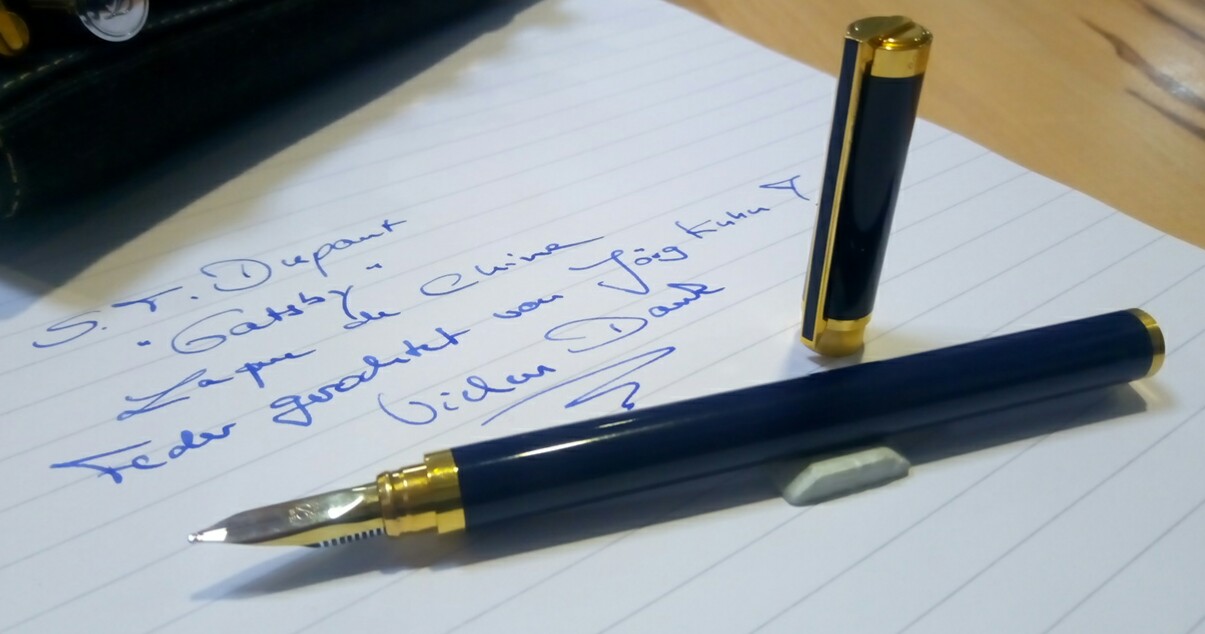 S. T. Dupont
"Gatsby"
Laque de Chine
Feder gerichtet von Jörg Kuhn
Vielen Dank